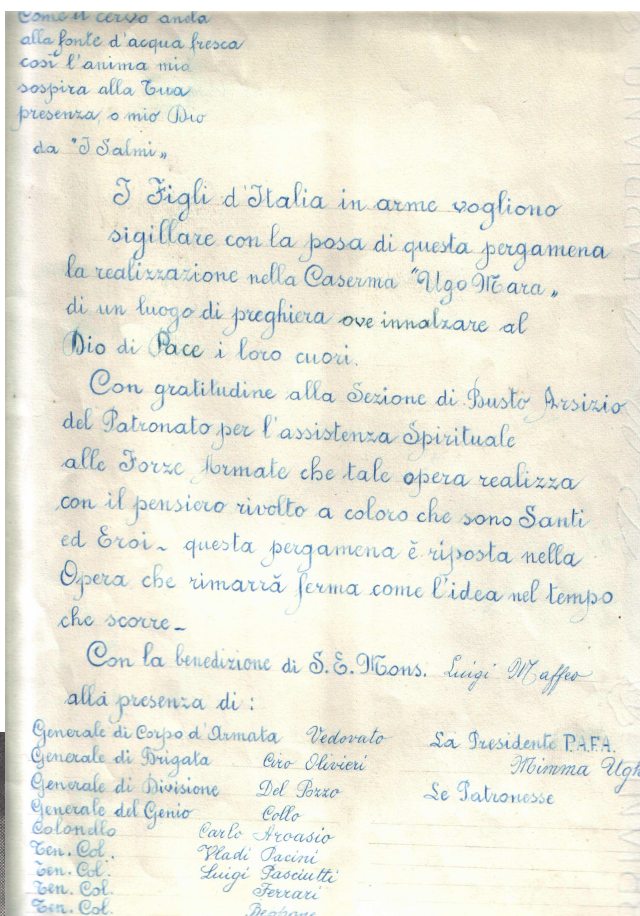 Come il cervo anela
alla fonte d'acqua fresca
così l'anima mia
sospira alla Tua
presenza, o mio Dio
da "I Salmi„
I Figli d'Italia in arme vogliono
sigillare con la posa di questa pergamena
la realizzazione nella Caserma "Ugo Mara„
di un luogo di preghiera ove innalzare al
Dio di Pace i loro cuori.
Con gratitudine alla Sezione di Busto Arsizio
del Patronato per l'assistenza Spirituale
alle Forze Armate che tale opera realizza
con il pensiero rivolto a coloro che sono Santi
ed Eroi - questa pergamena è riposta nella
Opera che rimarrà ferma come l'idea nel tempo
che scorre -
Con la benedizione di S.E. Mons. Luigi Maffeo
alla presenza di :
Generale di Corpo d'Armata Vedovato La Presidente P.A.F.A.
Generale di Brigata Ciro Olivieri Mimma Ugh
Generale di Divisione Del Pozzo Le Patronesse
Generale del Genio Collo
Colonello Carlo Arvasio
Ten. Col. Vladi Pacini
Ten. Col. Luigi Pasciutti
Ten. Col. Ferrari
Ten. Col.